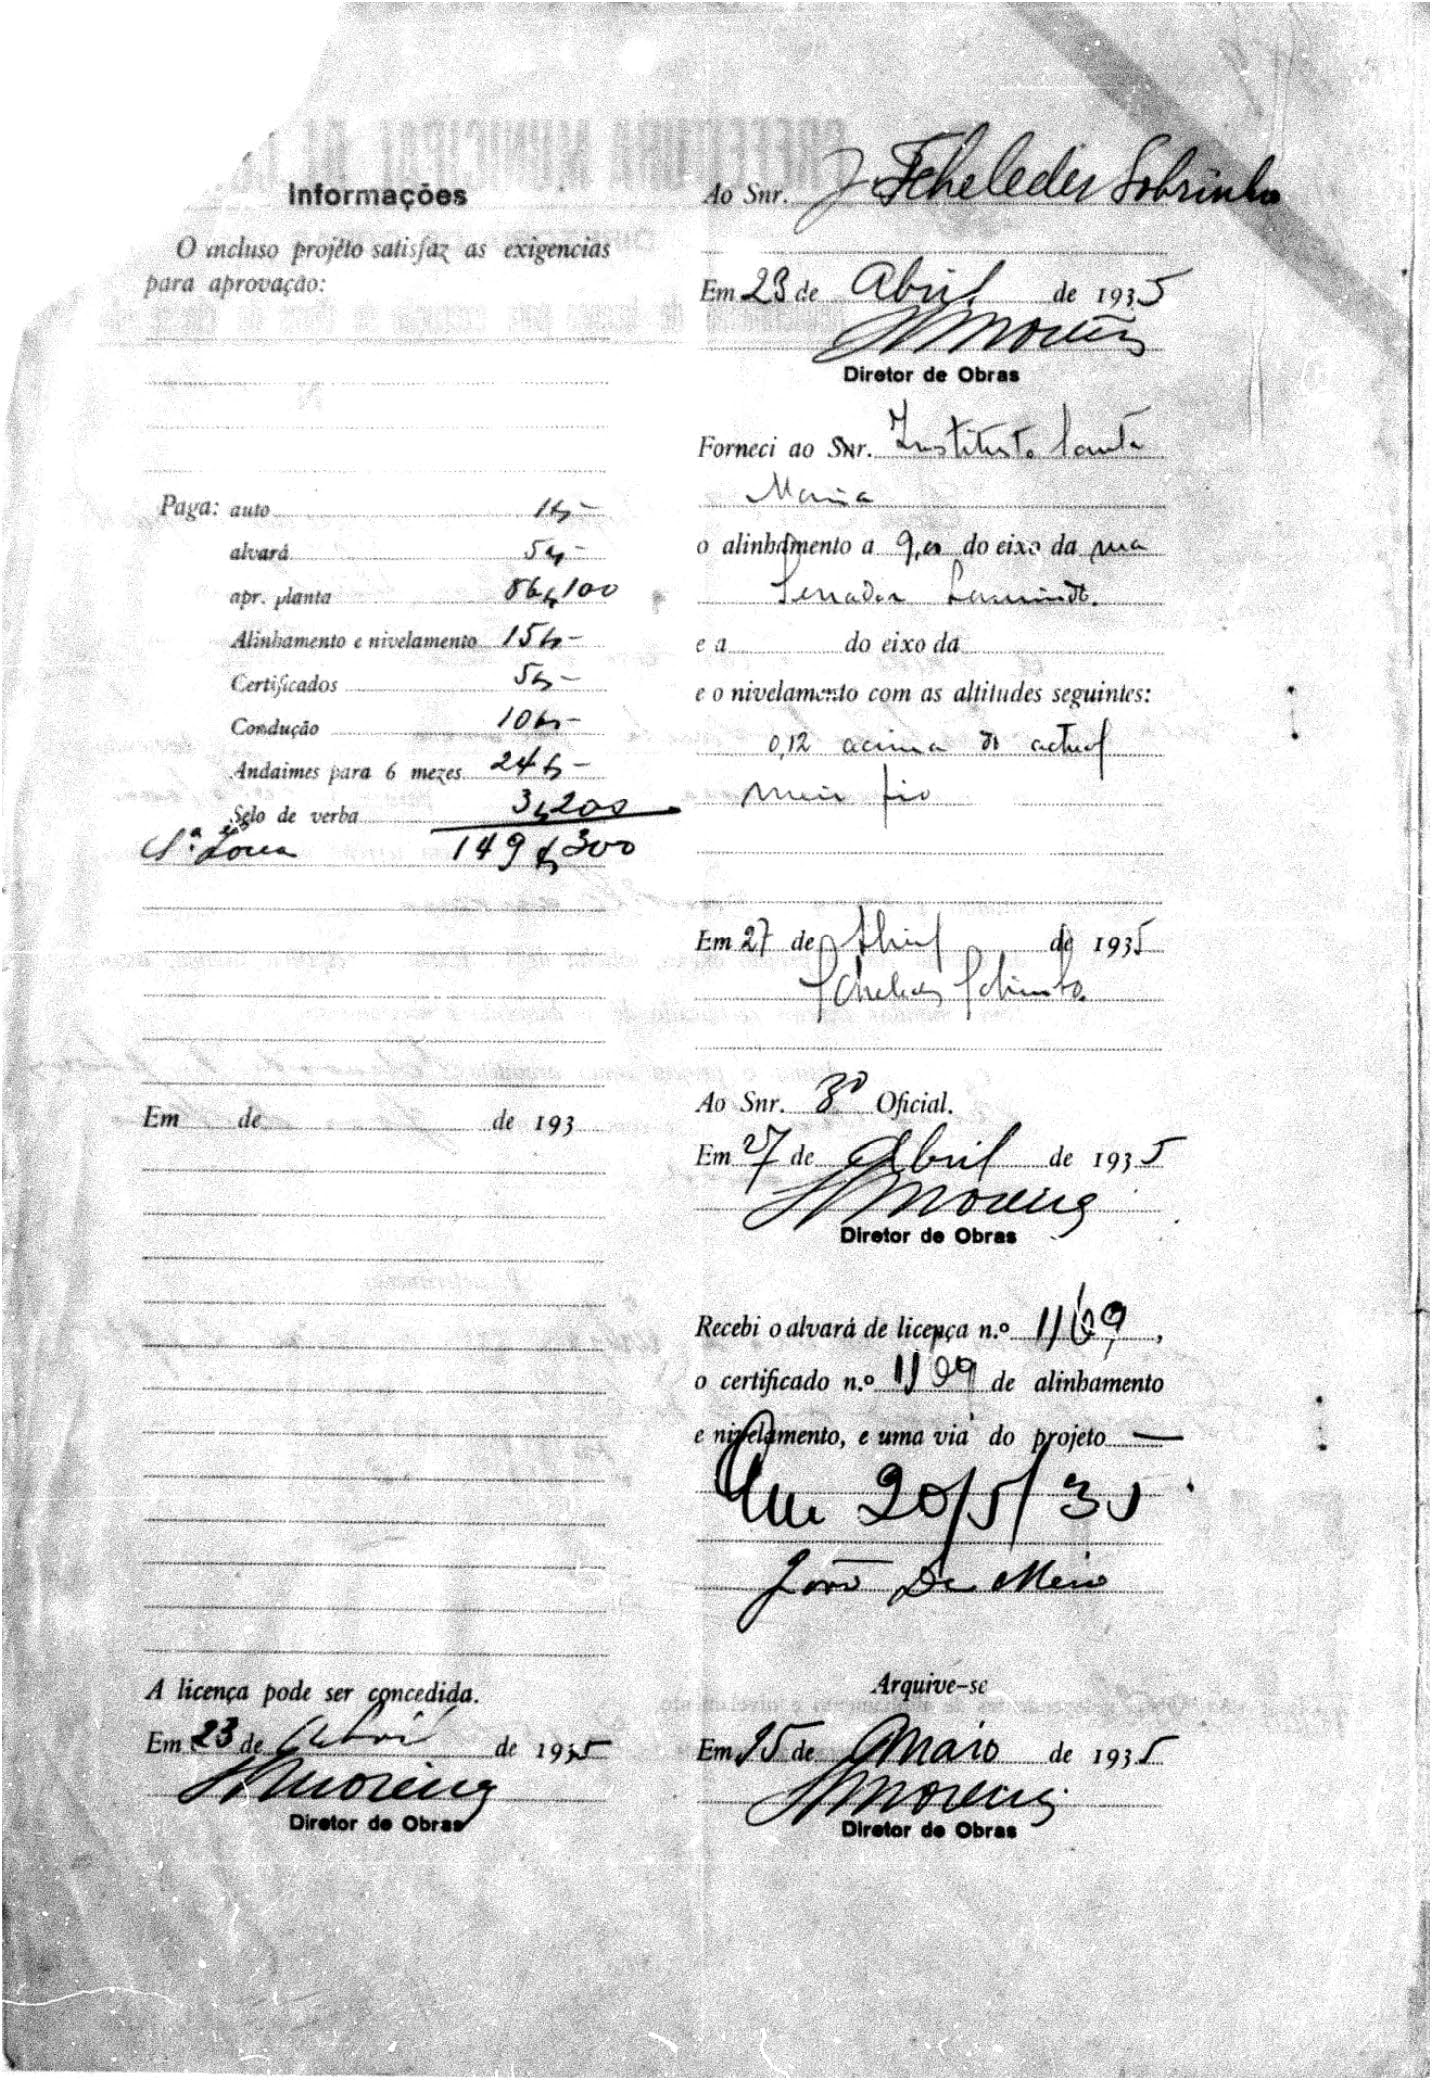 Informações
O incluso projéto satisfaz as exigencias
para aprovação:
Paga: auto 1$-
alvará 5$-
apr. planta 86$100
Alinhamento e nivelamento 15$-
Certificados 5$-
Condução 10$-
Andaimes para 6 mezes 24$-
Selo de verba 3$200
149$300
Em de de 193
A licença pode ser concedida.
Em 23 de Abril de 1935
Moreira
Diretor de Obras
Ao Snr. J. Scheleder Sobrinho
Em 23 de Abril de 1935
Moreira
Diretor de Obras
Forneci ao Snr. Instituto Santa
Maria
o alinhamento a 9,00 do eixo da rua
Senador
e a do eixo da
e o nivelamento com as altitudes seguintes:
0,12 acima do actual
meio fio
Em 27 de Abril de 1935
Scheleder Sobrinho
Ao Snr. 3º Oficial.
Em 27 de Abril de 1935
Moreira
Diretor de Obras
Recebi o alvará de licença n.º 1109,
o certificado n.º 1109 de alinhamento
e nivelamento, e uma via do projeto
Em 20/5/35
João De Mio
Arquive-se
Em 25 de Maio de 1935
Moreira
Diretor de Obras